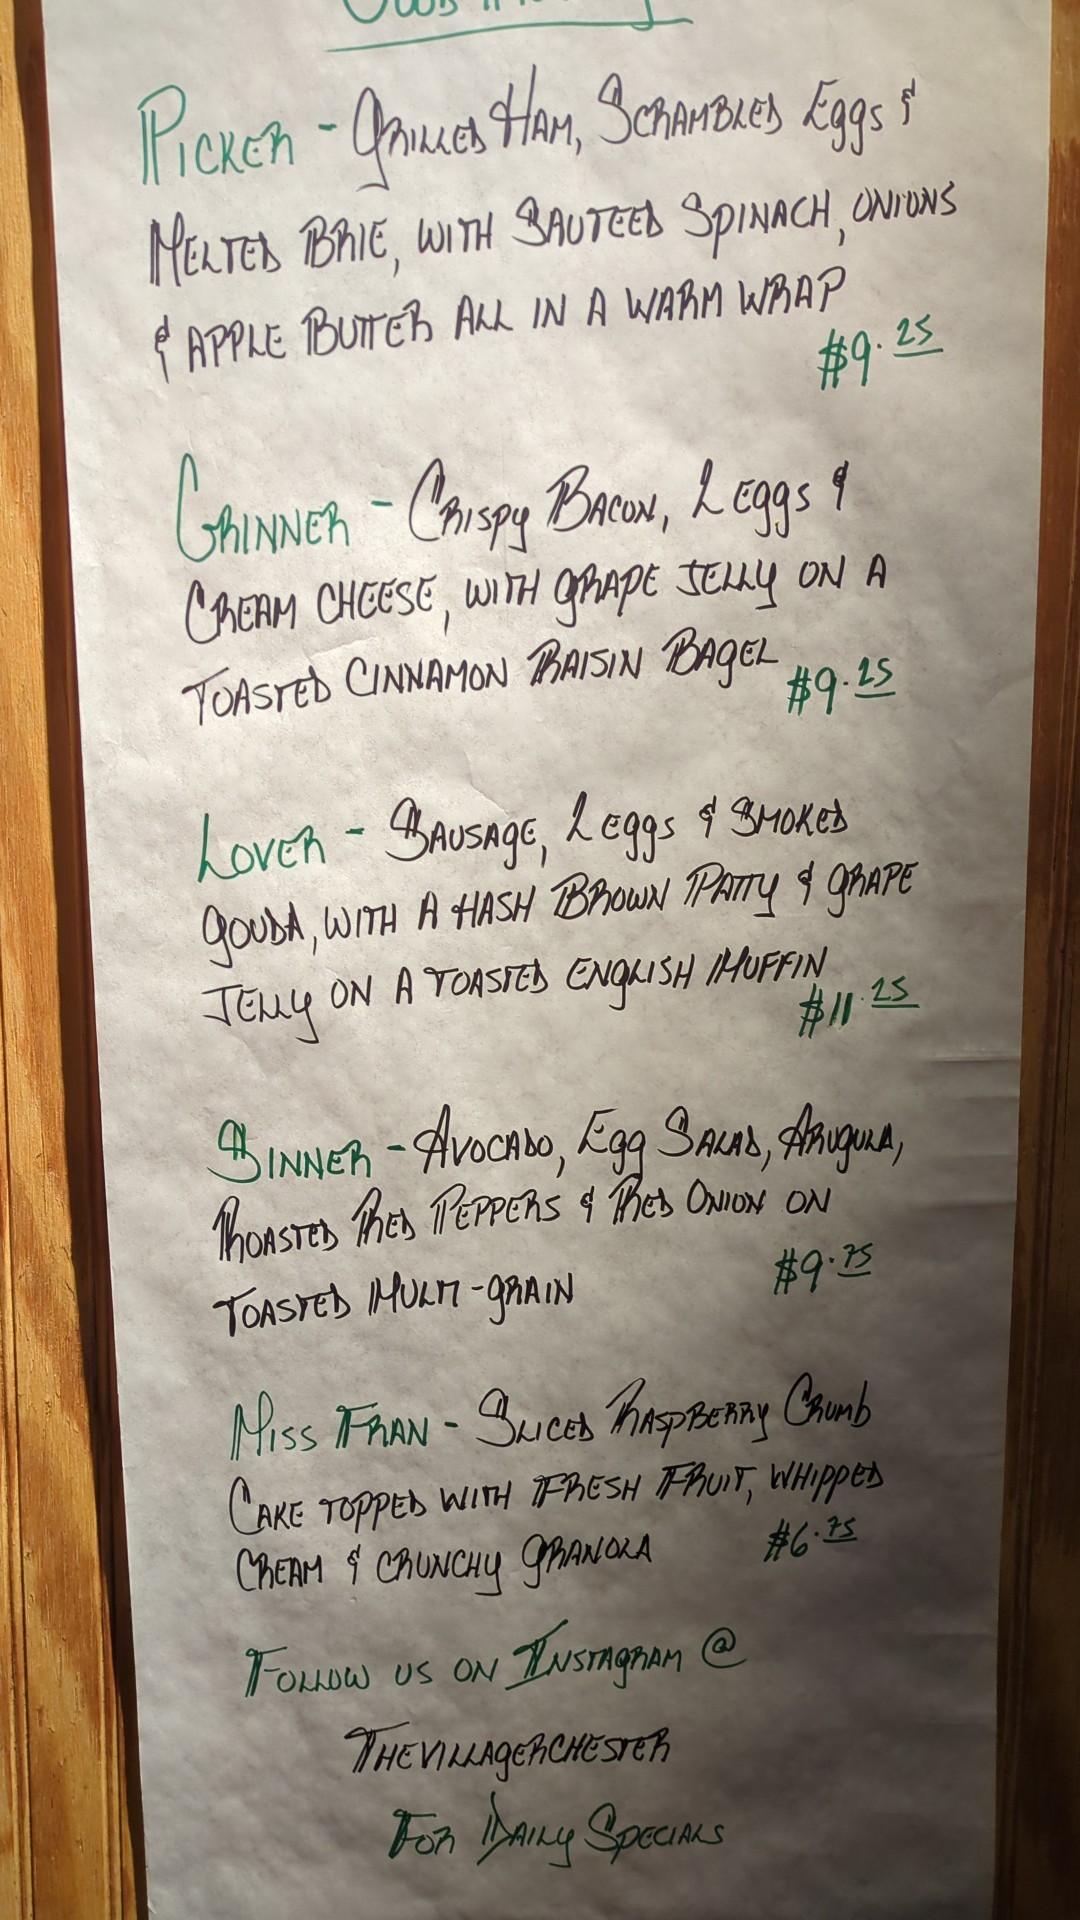 Good
Picker - Grilled Ham, Scrambled Eggs &
Melted Brie, with Sauteed Spinach, onions
& apple Butter all in a warm wrap
$9.25
Grinner - Crispy Bacon, 2 eggs &
Cream cheese, with grape jelly on a
Toasted Cinnamon Raisin Bagel
$9.25
Lover - Sausage, 2 eggs & Smoked
gouda, with a hash Brown Patty & grape
Jelly on a toasted english Muffin
$11.25
Sinner - Avocado, Egg Salad, Arugula,
Roasted Red Peppers & Red Onion on
toasted Multi-grain
$9.75
Miss Fran - Sliced Raspberry Crumb
Cake topped with Fresh Fruit, whipped
Cream & crunchy granola
$6.75
Follow us on Instagram @
Thevillagerchester
For Daily Specials